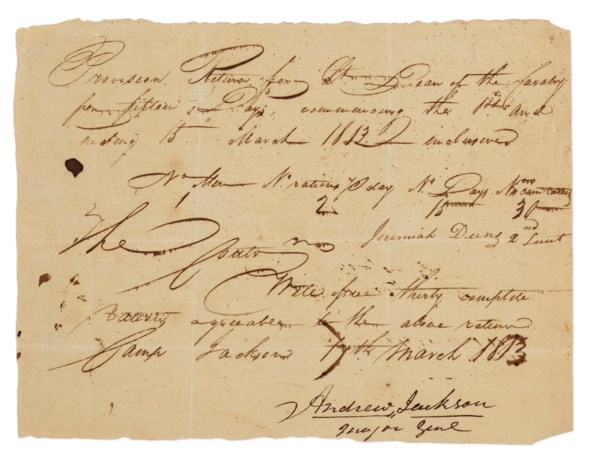 Provision Return for Lt Dean of the Cavalry
for fifteen Days, commencing the 1st And
ending 15 March 1813 inclusived
No Men No rations P day No Days No
1 2 15 30
Jeremiah 2nd Lieut
The
Will free thirty complete
agreeable to the above return
Camp Jackson 17th March 1813
Andrew Jackson
Major Genl